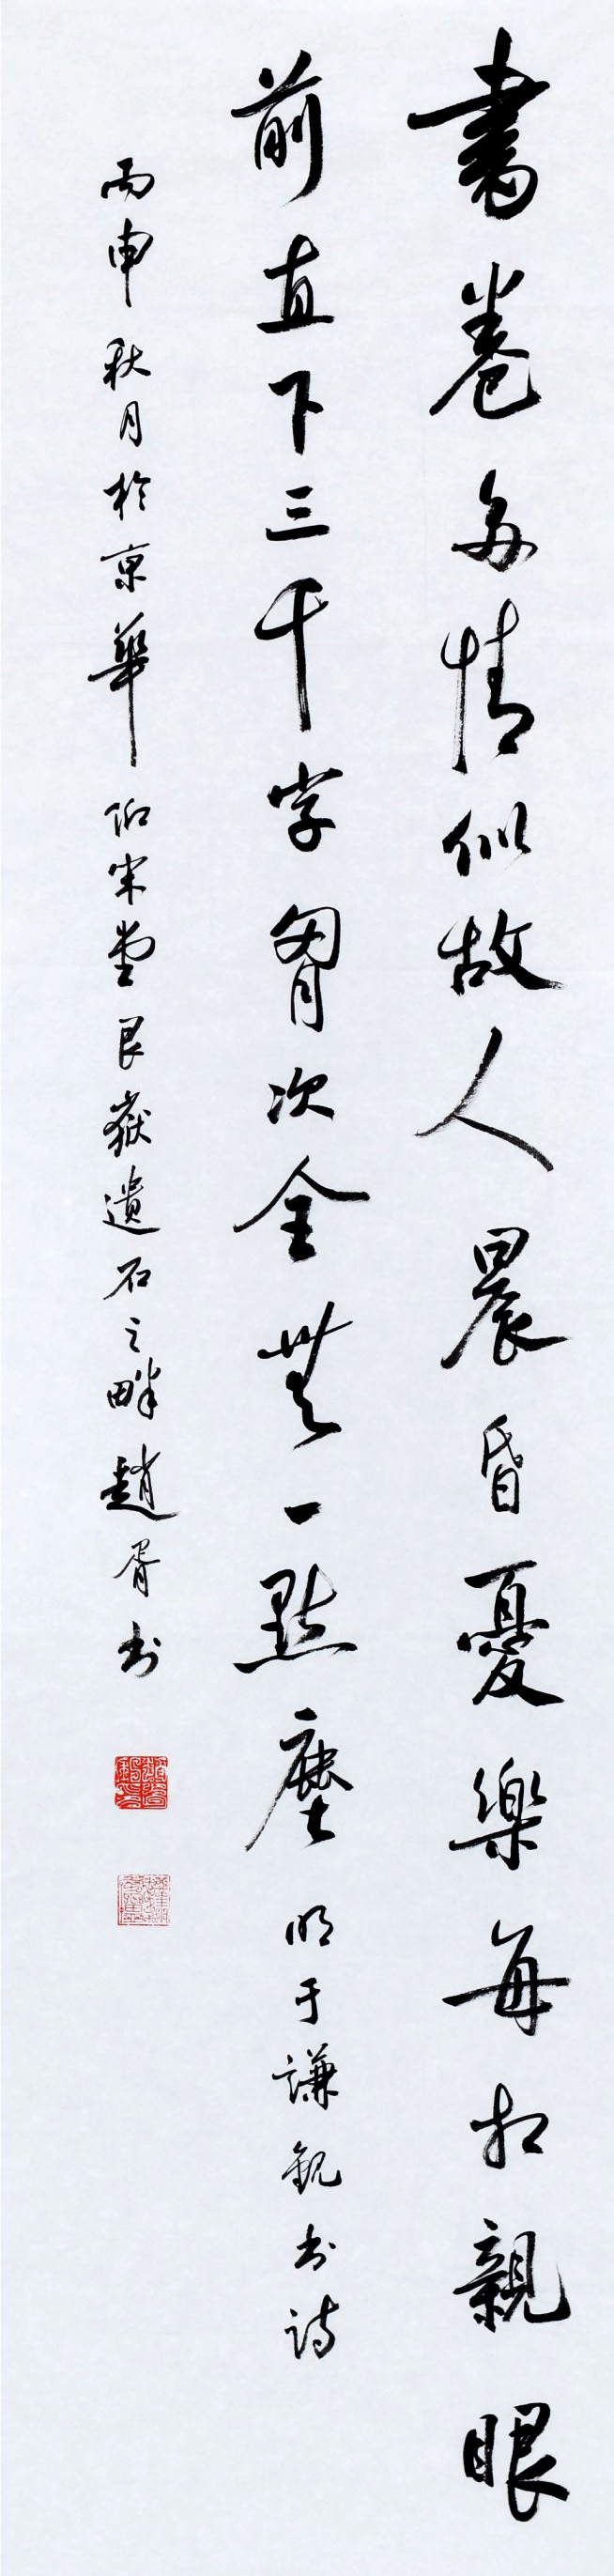 書卷多情似故人晨昏憂樂每相親眼
前直下三千字胷次全無一點塵 明于謙觀书诗
丙申秋月於京華仰宋堂艮嶽遺石之畔趙胥书